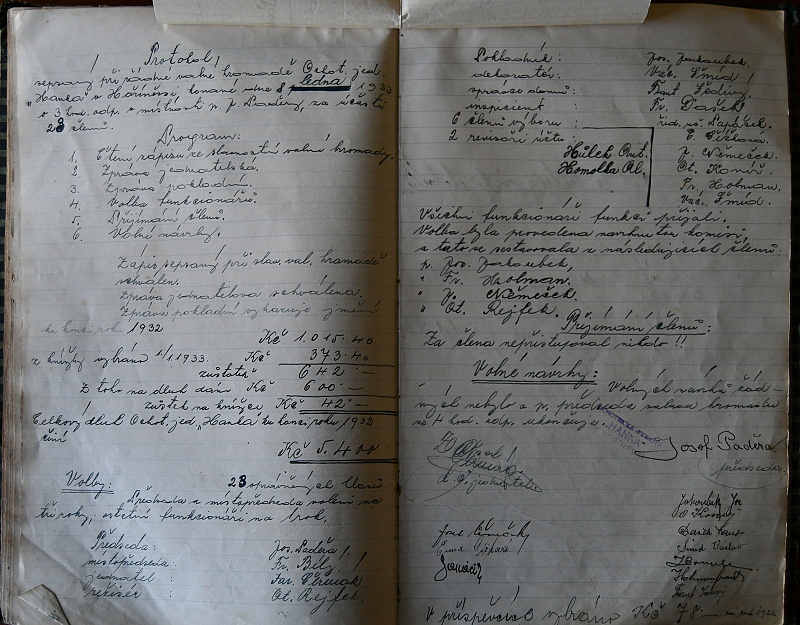 Protokol
sepsaný při řádné valné hromadě Ochot. jed.
"Hanka" v konané dne 8 ledna 1933
o 3 hod. odp. v místnosti p. J. Paděry, za účasti
23 členů.
Program:
1. Čtení zápisu ze slavnostní valné hromady.
2. Zpráva jednatelská.
3. Zpráva pokladní.
4. Volba funkcionářů.
5. Přijímání členů.
6. Volné návrhy.
Zápis sepsaný při slav. val. hromadě
schválen.
Zpráva jednatelova schválena.
Zpráva pokladní vykazuje jmění
ku konci roku 1932
Kč 1.015.40
z knížky vybráno 1/1 1933. Kč 373.40
zůstatek 642.—
Z toho na dluh dáno Kč 600.—
zůstatek na knížce Kč 42.—
Celkový dluh Ochot. jed. "Hanka" ku konci roku 1932
činí
Kč 5.400
Volby: 23 oprávněných hlasů.
Předseda a místopředseda voleni na
tři roky, ostatní funkcionáři na 1 rok.
Předseda: Jos. Paděra
místopředseda: Fr. Bílý
jednatel : Jar.
režisér : Ot. Rejfek.
Pokladník: Jos. Jakoubek.
dekoratér: Vác. Šmíd
správce domů: Frant. Šedivý
inspicient : Fr. Dašek
6 členů výboru : říd. uč. Lapáček.
2 revisoři účtu: E. Čížková.
Hůlek Ant. J. Němeček.
Homolka Al. Ot. Koníř.
Fr. Holman.
Vác. Šmíd.
Všichni funkcionáři funkci přijali.
Volba byla provedena navrhnutou komisí,
a tato se sestavovala z následujících členů:
p. Jos. Jakoubek,
" Fr. Holman.
" J. Němeček.
" Ot. Rejfek.
Přijímání členů:
Za člena nepřistupoval nikdo!!
Volné návrhy: Volných návrhů žád-
ných nebylo a p. předseda valnou hromadu
ve 4 hod. odp. ukončuje.
HANKA
Josef Paděra
předseda.
t. č. jednatel
V příspěvcích vybráno Kč 78.— za rok 1932